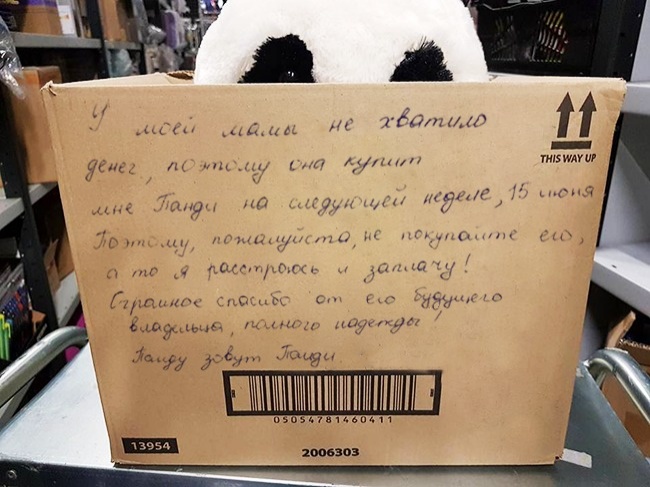 У моей мамы не хватило
денег, поэтому она купит
мне Панди на следующей неделе, 15 июня
Поэтому, пожалуйста, не покупайте его,
а то я расстроюсь и заплачу!
Огромное спасибо от его будущего
владельца, полного надежды!
Панду зовут Панди
THIS WAY UP
05054781460411
13954
2006303